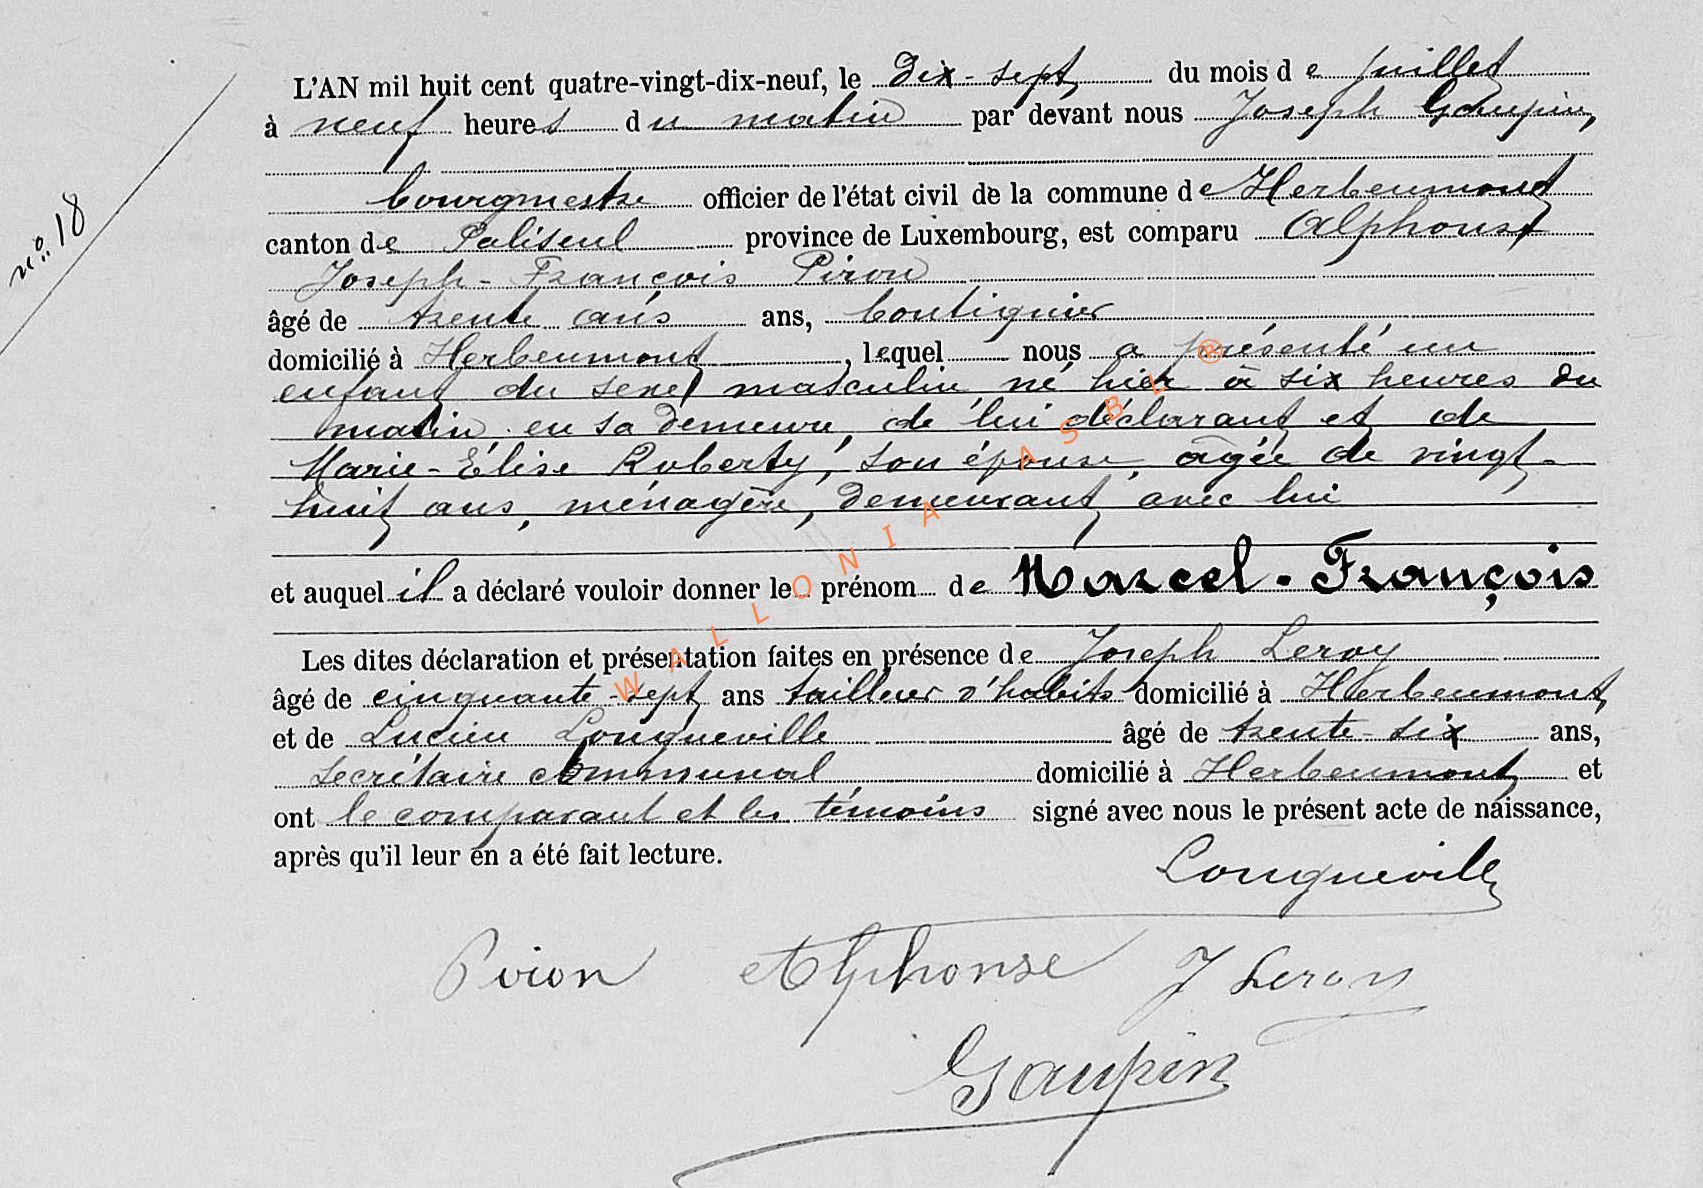 n° 18
L'AN mil huit cent quatre-vingt-dix-neuf, le dix-sept du mois de juillet
à neuf heures du matin par devant nous Joseph Gaupin,
bourgmestre officier de l'état civil de la commune de Herbeumont
canton de Paliseul province de Luxembourg, est comparu Alphonse
Joseph-François Piron
âgé de trente ans ans,
domicilié à Herbeumont, lequel nous a présenté un
enfant du sexe masculin, né hier à six heures du
matin, en sa demeure, de lui déclarant et de
Marie-Élise Roberty, son épouse, âgée de vingt-
huit ans, ménagère, demeurant avec lui
et auquel il a déclaré vouloir donner le prénom de Marcel-François
Les dites déclaration et présentation faites en présence de Joseph Leroy
âgé de cinquante-sept ans tailleur d'habits domicilié à Herbeumont,
et de Lucien Longueville âgé de trente-six ans,
secrétaire communal domicilié à Herbeumont et
ont le comparant et les témoins signé avec nous le présent acte de naissance,
après qu'il leur en a été fait lecture.
Longueville
Piron Alphonse J Leroy
Gaupin
WALLONIA ASBL ®